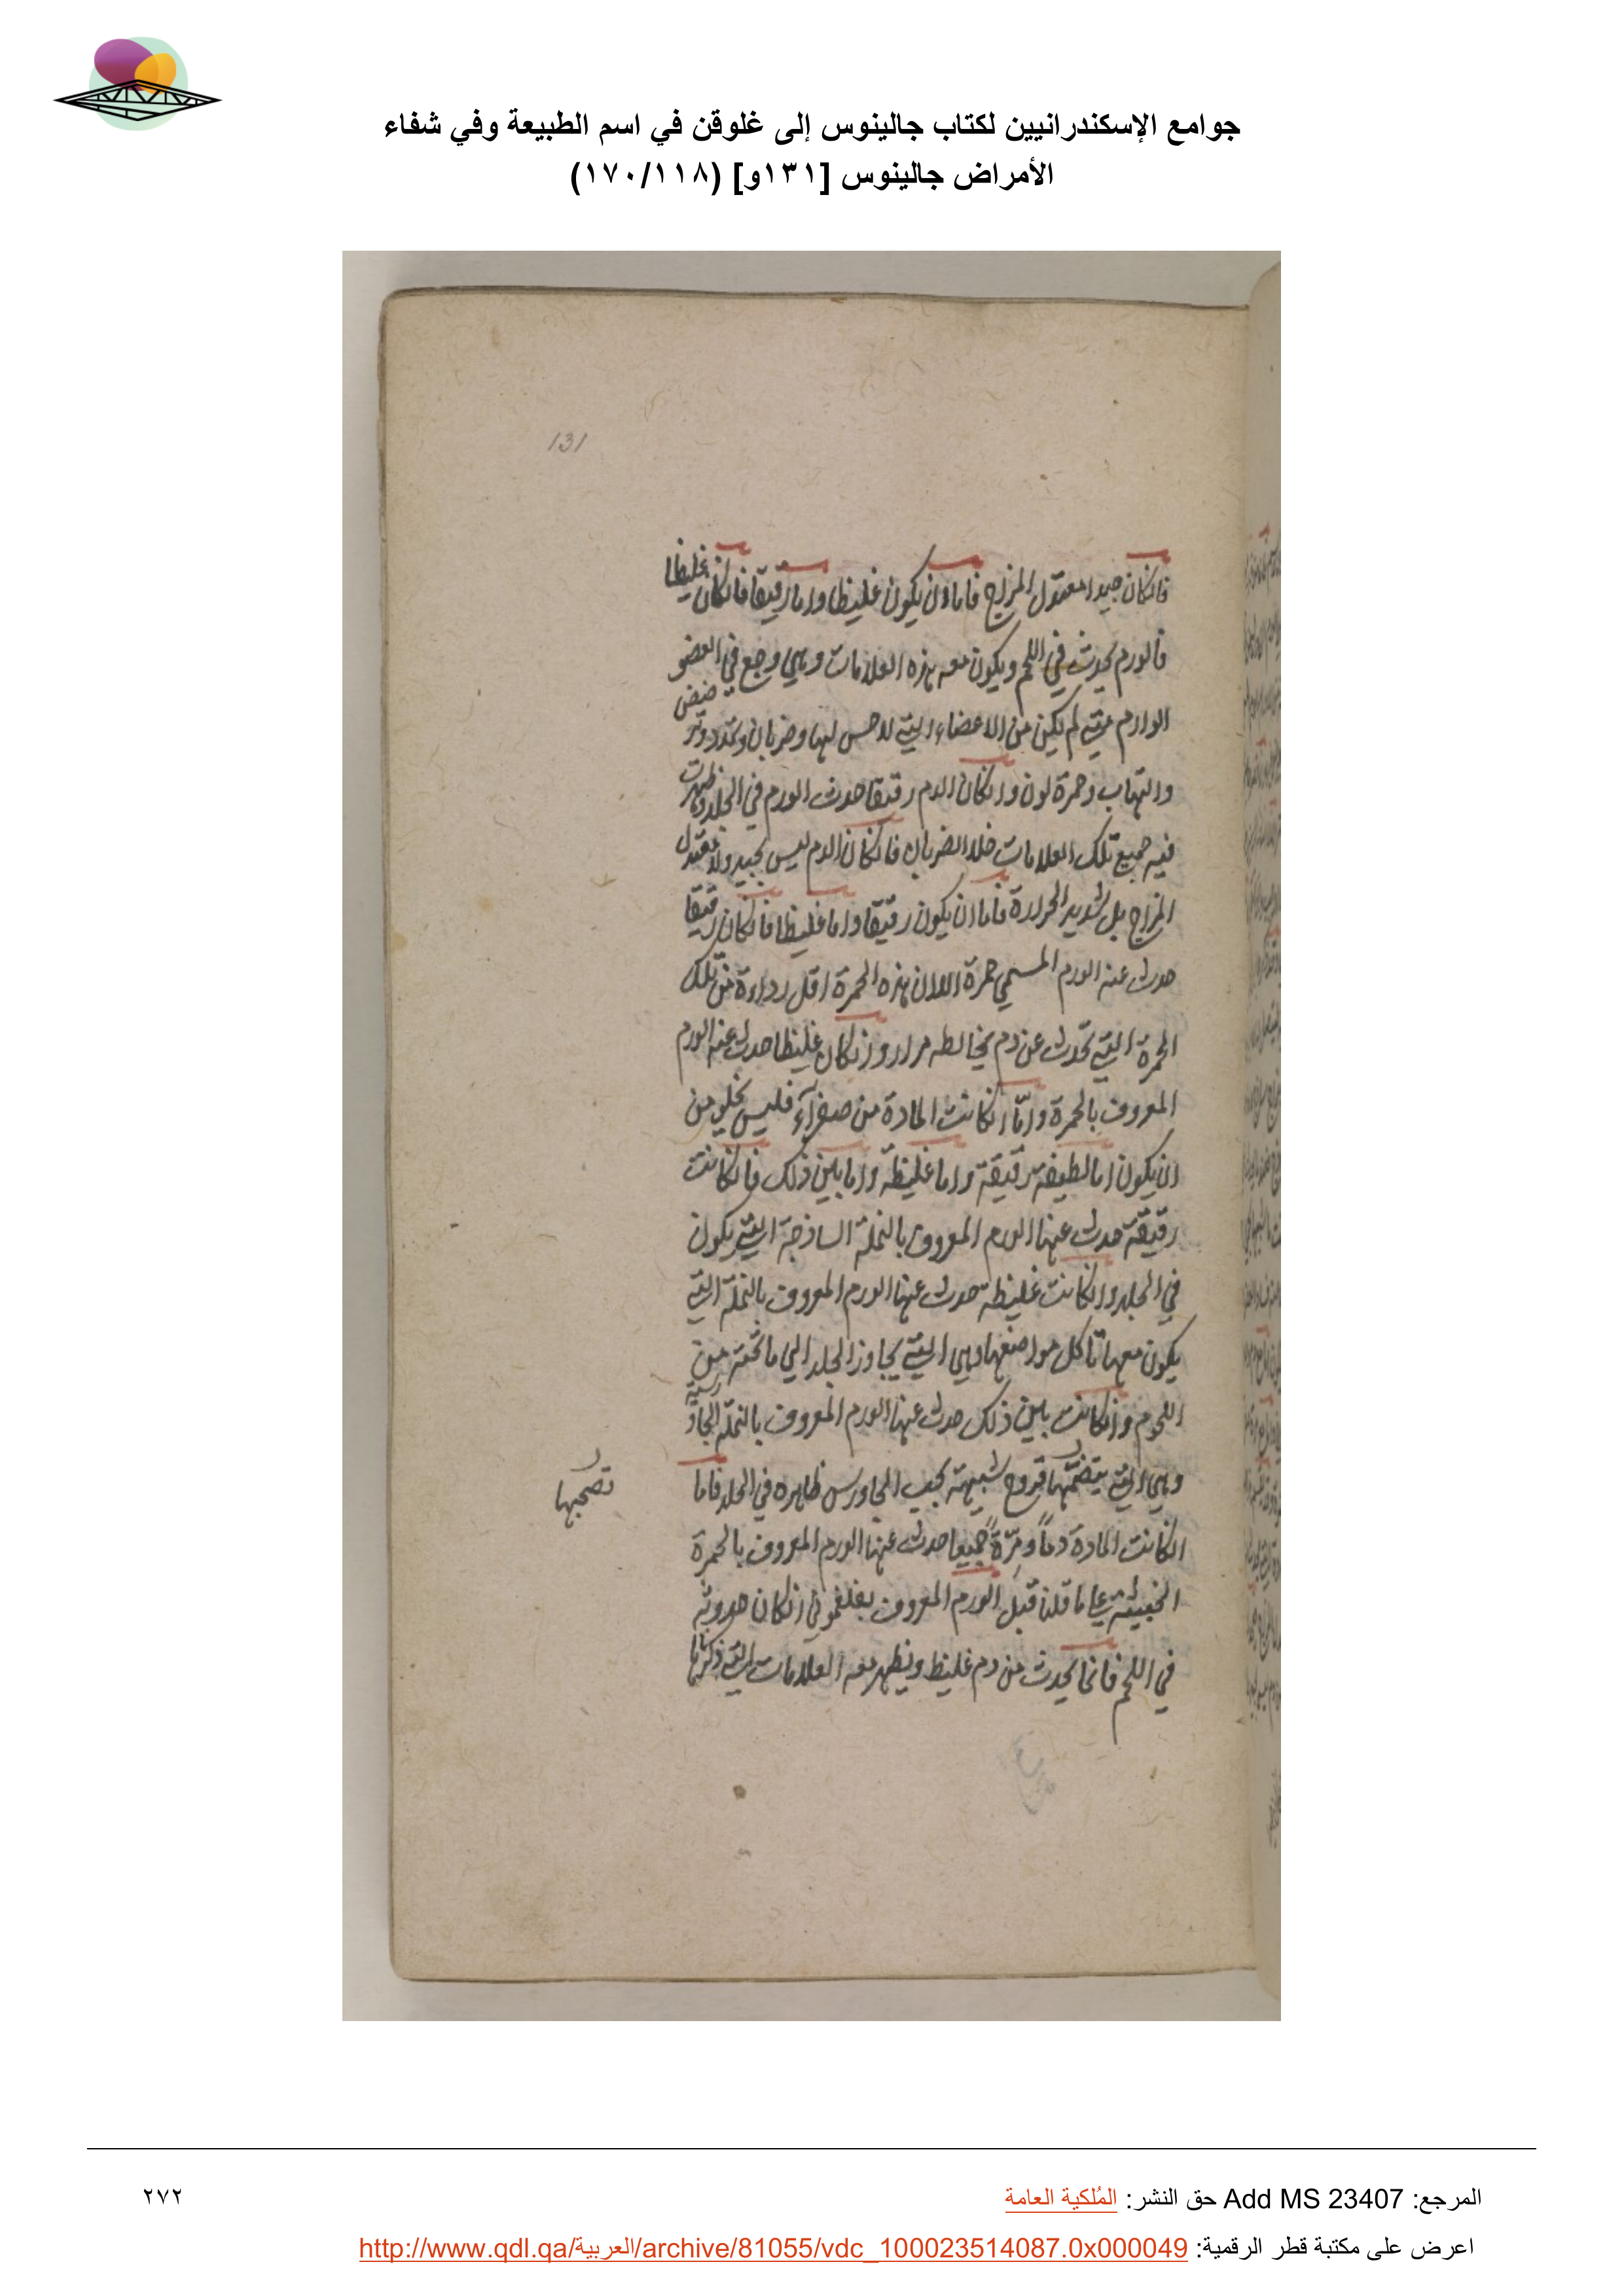 جوامع الإسكندرانيين لكتاب جالينوس إلى غلوقن في اسم الطبيعة وفي شفاء
الأمراض جالينوس [١٣١و] (١٧٠/١١٨)
131
فانكان جيدا معتدل المزاج فاما ان يكون غليظا واما رقيقا فانكان غليظا
فالورم يحدث في اللحم ويكون معه هذه العلامات وهي وجع في العضو
الوارم متي لم يكن من الاعضاء التي لا حس لها وضربان وتمدد
والتهاب وحمرة لون وانكان الدم رقيقا حدث الورم في الجلد وظهرت
فيه جميع تلك العلامات خلا الضربان فانكان الدم ليس بجيد ولا معتدل
المزاج بل شديد الحرارة فاما ان يكون رقيقا واما غليظا فانكان رقيقا
حدث عنه الورم المسمي حمرة الا ان هذه الحمرة اقل رداءة من تلك
الحمرة التي تحدث عن دم يخالطه مرار وانكان غليظا حدث عنه الورم
المعروف بالحمرة واما انكانت المادة من صفرآء فليس يخلو من
ان يكون اما لطيفة رقيقة واما غليظة واما بين ذلك فانكانت
رقيقة حدث عنها الورم المعروف بالنملة الساذجة التي يكون
في الجلد وانكانت غليظة حدث عنها الورم المعروف بالنملة التي
يكون معها تأكل مواضعها وهي التي يجاوز الجلد الي ما تحته من
اللحوم وانكانت بين ذلك حدث عنها الورم المعروف بالنملة الجاورسية
وهي التي قروح شبيهة بحب الجاورس ظاهره في الجلد فاما
تصحبها
انكانت المادة دماً ومرّةً جميعا حدث عنها الورم المعروف بالحمرة
الخبيثة علي ما قلنا قبل الورم المعروف بفلغموني انكان حدوثه
في اللحم فانما يحدث من دم غليظ ويظهر معه العلامات التي ذكرناها
المرجع: Add MS 23407 حق النشر: المُلكية العامة
٢٧٢
اعرض على مكتبة قطر الرقمية: http://www.qdl.qa/العربية/archive/81055/vdc_100023514087.0x000049